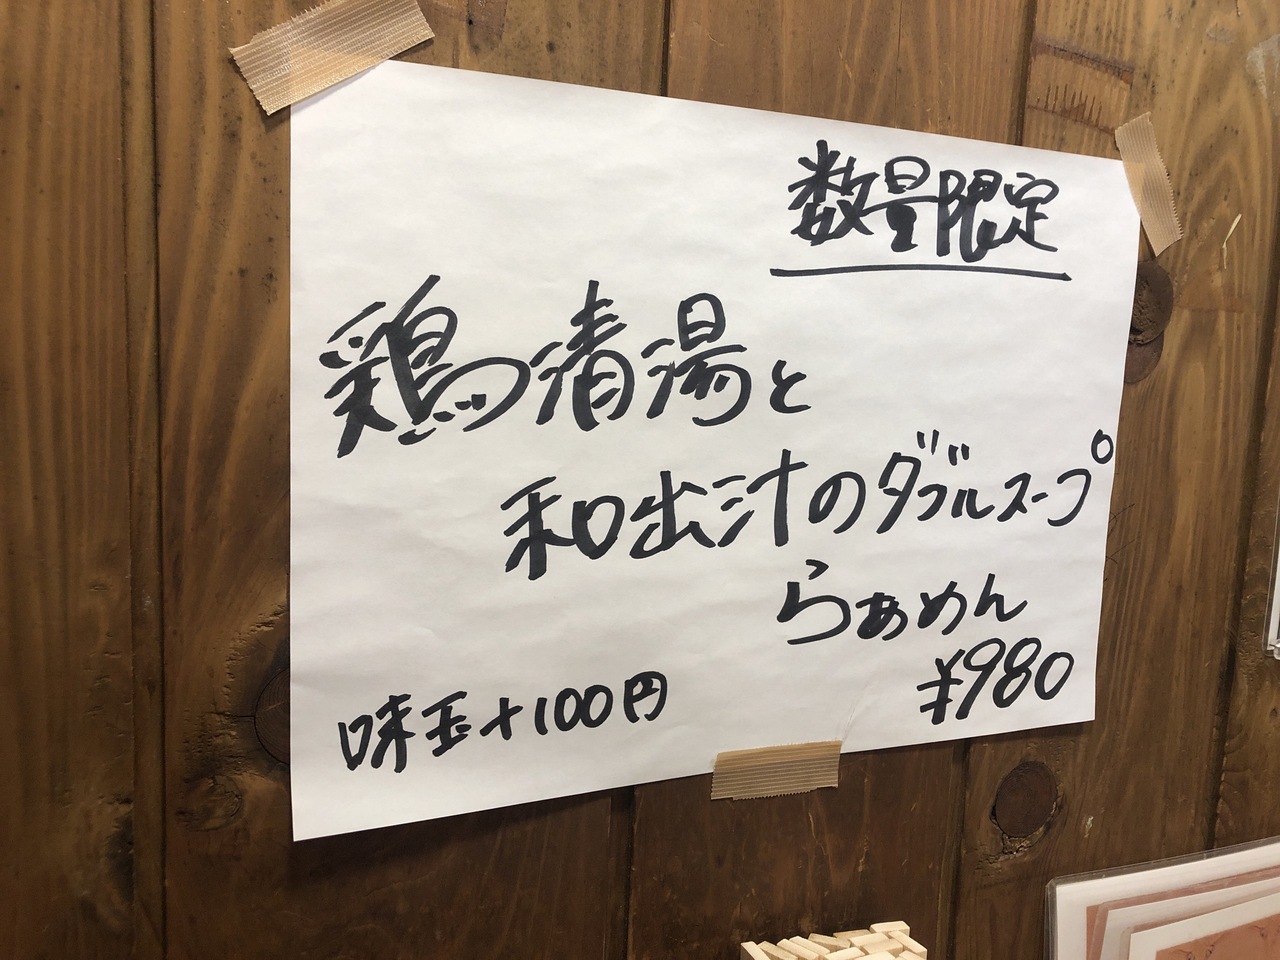 数量限定
鶏清湯と
和出汁のダブルスープ
らぁめん
¥980
味玉+100円